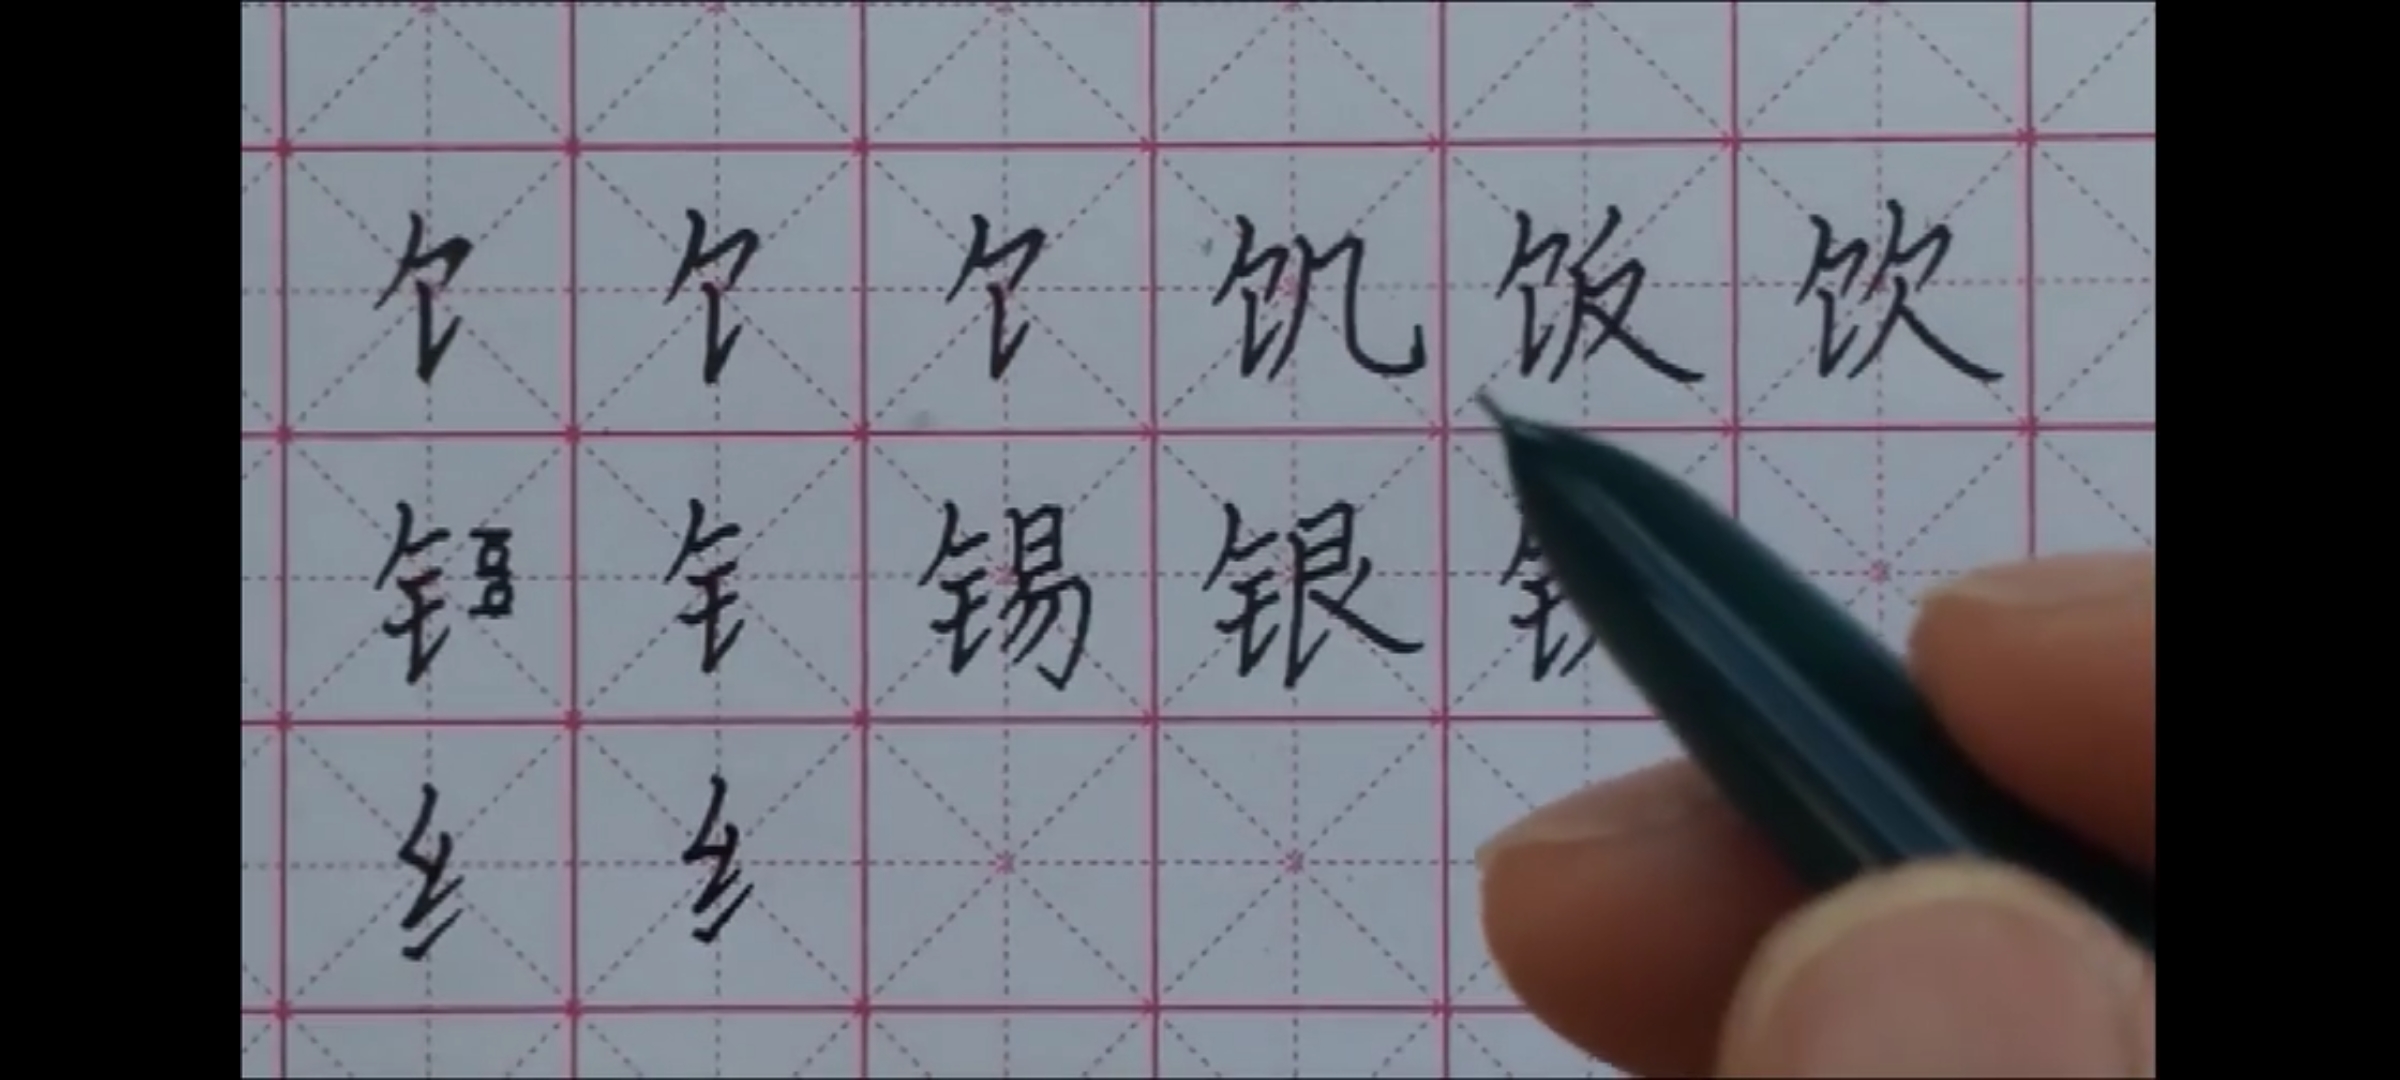 饣 饣 饣 饥 饭 饮
钅 钅 锡 银
纟 纟